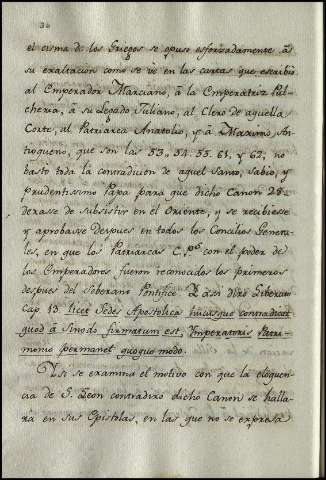 36
el cisma de los Griegos se opuso esforzadamente á
su exaltacion como se vé en las cartas que escribió
al Emperador Marciano, á la Emperatriz Pul-
cheria, á su Legado Juliano, al Clero de aquella
Corte, al Patriarca Anatolio, y á Maximo An-
tioqueno, que son las 53. 54. 55. 61. y 62, no
bastó toda la contradicion de aquel Santo, Sabio, y
prudentissimo Papa para que dicho Canon 28
dexase de subsistir en el Oriente, y se recibiese
y aprobasse despues en todos los Concilios Genera-
les, en que los Patriarcas C.P.os con el poder de
los Emperadores fueron reconocidos los primeros
despues del Soberano Pontifice. Y asi dixo Liberato
Cap. 13. licet Sedes Apostolica hucusque contradicat
quod á Sinodo firmatum est, Imperatoris Patri-
monio permanet quoquo modo.
Y si se examina el motivo con que la eloquen-
cia de S. Leon contradixo dicho Canon se halla-
rá en sus Epistolas, en las que no se expresa